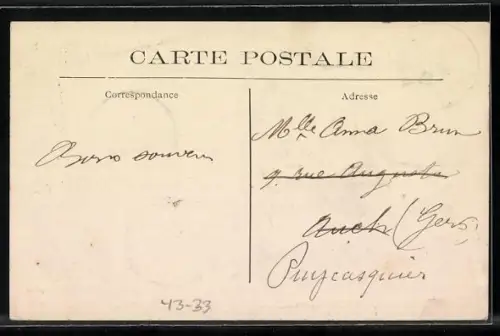 CARTE POSTALE
Correspondance
Adresse
Bons souvenirs
Mlle Anna Brun
9, rue Augusta
Auch (Gers)
Puycasquier
43-33